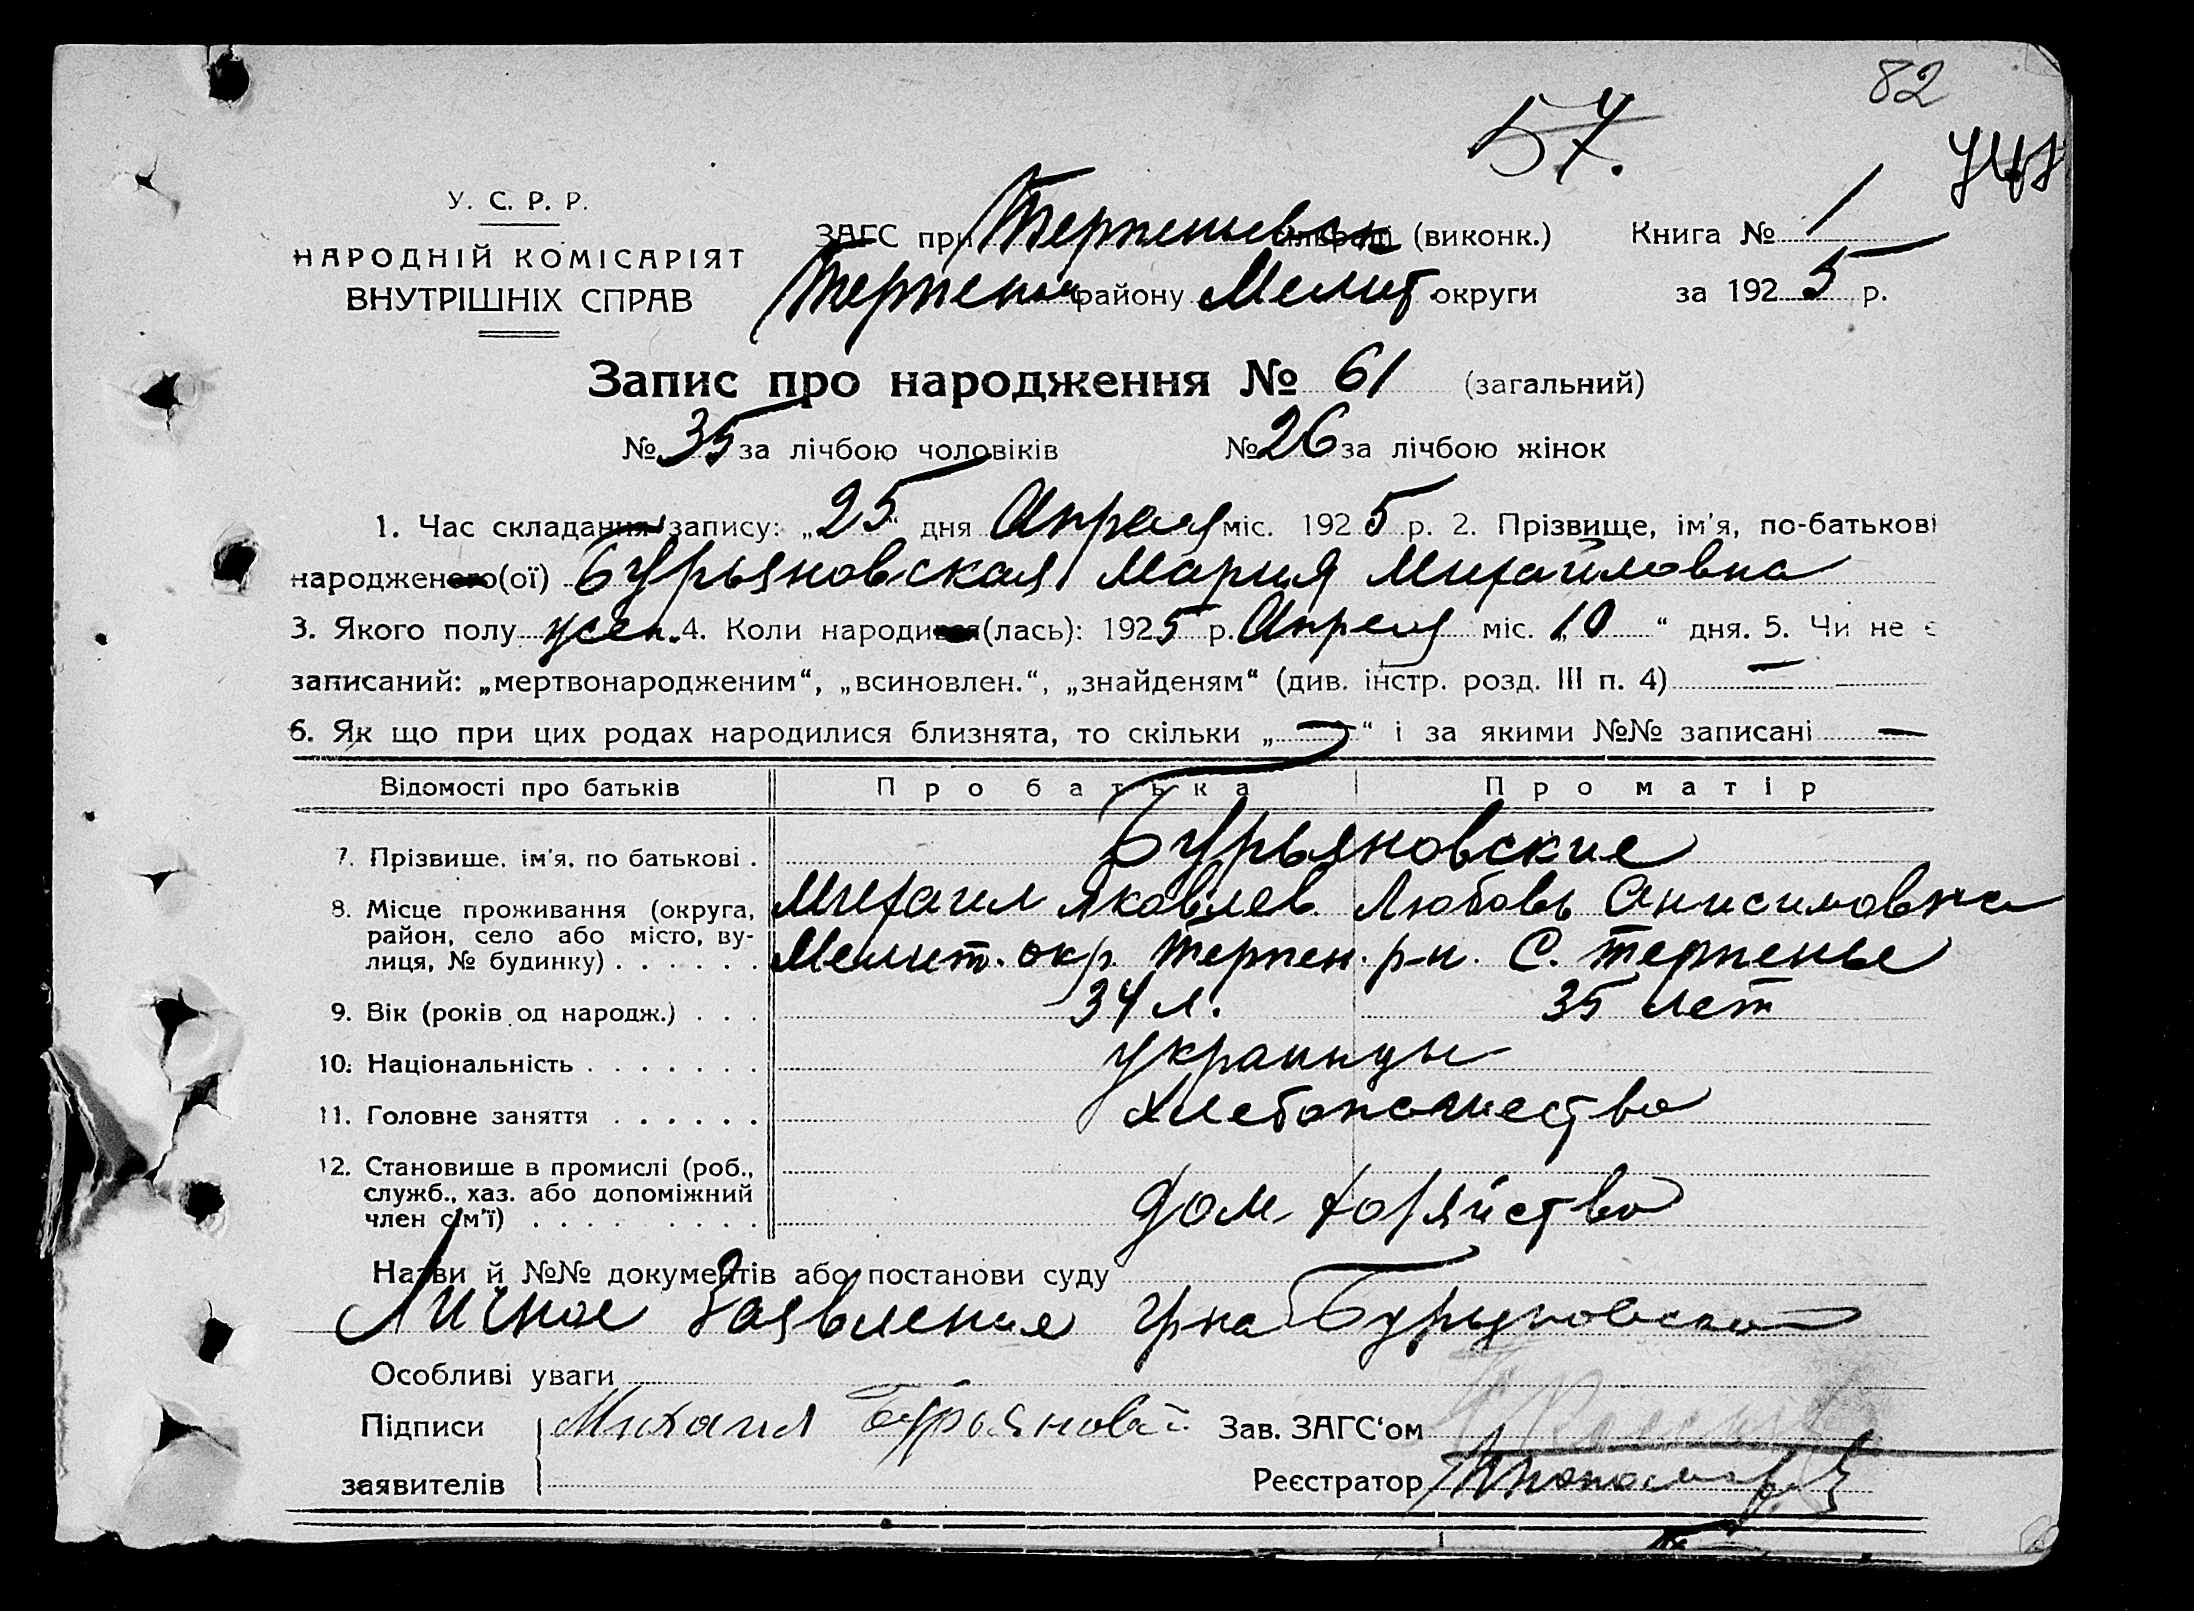 82
57.
У. С. Р. Р.
НАРОДНІЙ КОМІСАРІЯТ
ВНУТРІШНІХ СПРАВ
ЗАГС при Терпеньевск (виконк.) Книга № 1
Терпен району Мелит округи за 1925 р.
Запис про народження № 61 (загальний)
№ 35 за лічбою чоловіків № 26 за лічбою жінок
1. Час складання запису: „25“ дня Апреля міс. 1925 р. 2. Прізвище, ім'я, по-батькові
народженого(ої) Бурьяновская Мария Михайловна
3. Якого полу жен. 4. Коли народився(лась): 1925 р. Апреля міс. „10“ дня. 5. Чи не є
записаний: „мертвонародженим“, „всиновлен.“, „знайденям“ (див. інстр. розд. III п. 4) —
6. Як що при цих родах народилися близнята, то скільки „—“ і за якими №№ записані —
Відомості про батьків Про батька Про матір
7. Прізвище, ім'я, по батькові . Бурьяновские
8. Місце проживання (округа, Михаил Яковлев. Любовь Анисимовна
район, село або місто, ву-
лиця, № будинку) . . . . . . Мелит. окр. Терпен. р-н. С. Терпенье
9. Вік (років од народж.) . . . 34 л. 35 лет
10. Національність . . . . . . . украинцы
11. Головне заняття . . . . . . хлебопашество
12. Становище в промислі (роб.,
служб., хаз. або допоміжний
член сім'ї) . . . . . . . . . дом. хозяйство
Назви й №№ документів або постанови суду
Личное Заявление гр-на Бурьяновского
Особливі уваги
Підписи Михаил Бурьяновс Зав. ЗАГС'ом
заявителів Реєстратор